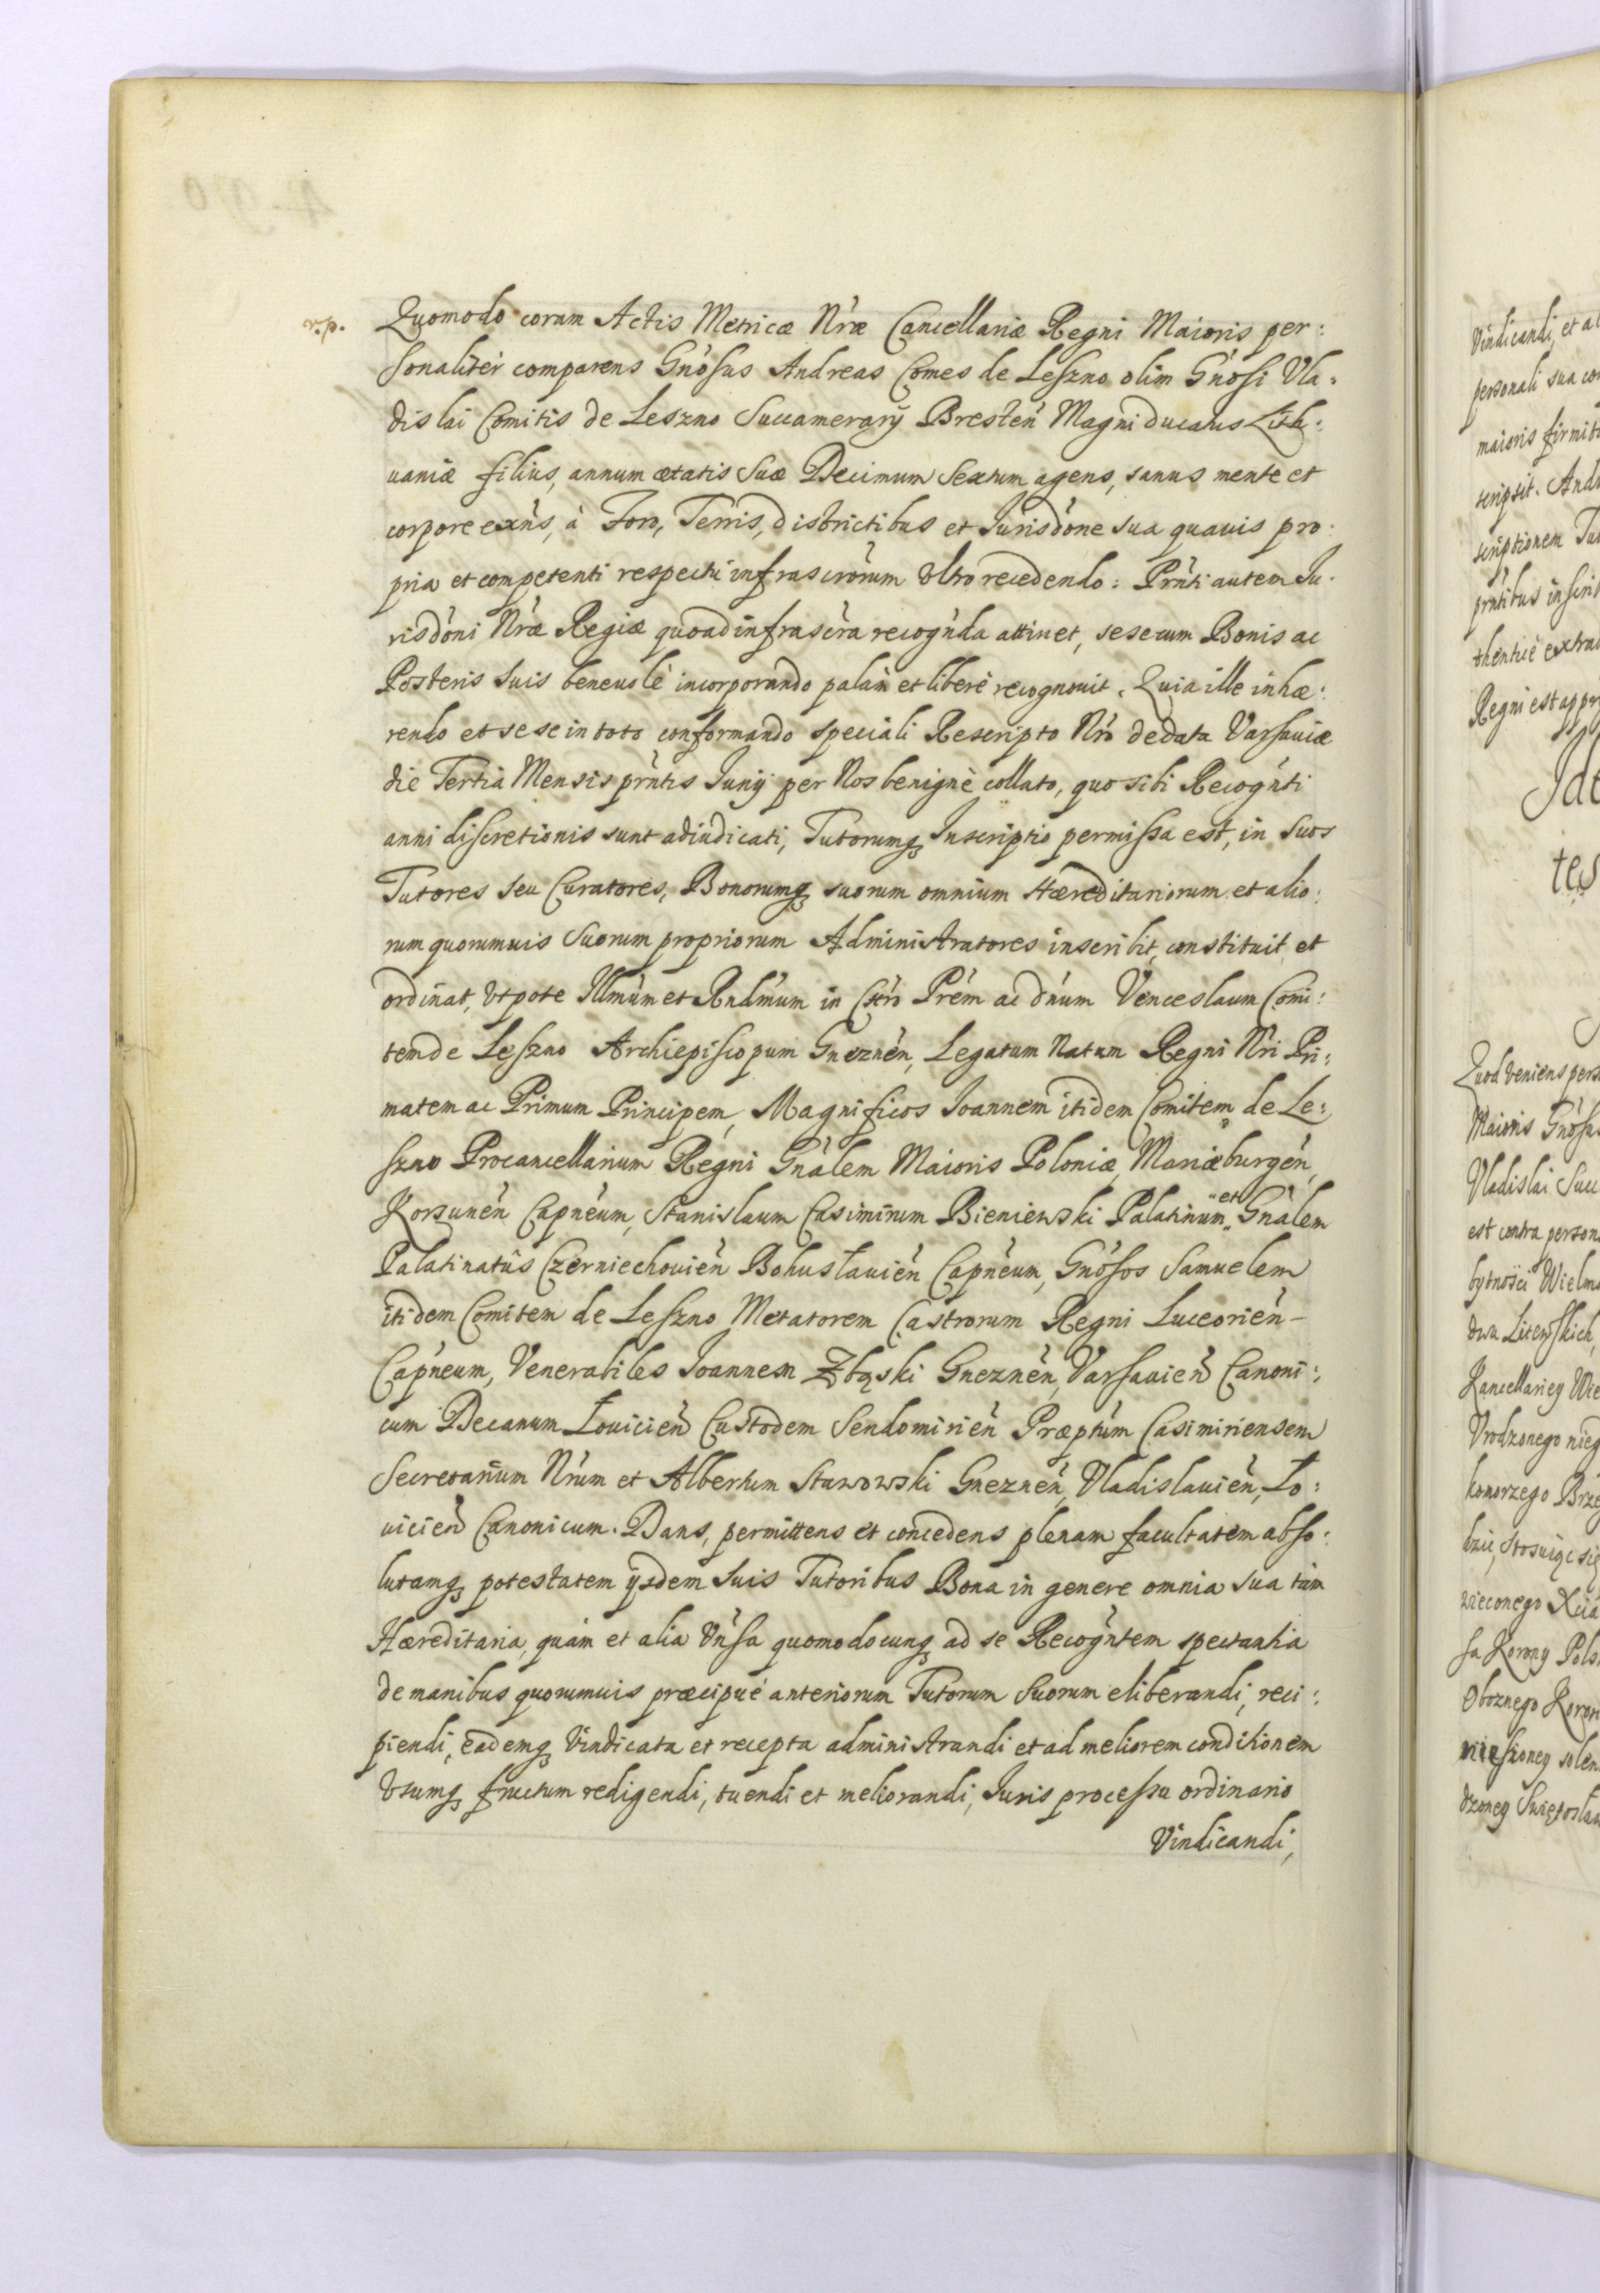 r.p.
Quomodo coram Actis Metricæ Nr̃æ Cancellariæ Regni Maioris per:
sonalitèr comparens Gnõsus Andreas Comes de Leszno olim Gnõsi Vla:
dislai Comitis de Leszno Succamerarÿ Bresteñ Magni Ducatus Lith:
uaniæ filius, annum ætatis suæ Decimum Sextum agens, sanus mente et
corpore exñs, à Foro, Terris, districtibus et Jurisdõne sua quauis pro:
pria et competenti respectu infrascrõrum Vltro recedendo: Prñti autem Ju:
risdõni Nr̃æ Regiæ quoad infrascr̃a recogñda attinet, sese cum Bonis ac
Posteris suis beneuolè incorporando palàm et liberè recognouit. Quia ille inhæ:
rendo et sese in toto conformando speciali Rescripto Nr̃o de data Varsauiæ
die Tertia Mensis prñtis Junÿ per Nos benignè collato, quo sibi Recogñti
anni discretionis sunt adiudicati, Tutorumq Inscriptio permissa est, in suos
Tutores seu Curatores, Bonorumq suorum omnium Hæreditariorum et alio:
rum quorumuis suorum propriorum Administratores inscribit, constituit et
ordinat, vtpote Illm̃um et Rndm̃um in Chr̃o Pr̃em ac dñum Venceslaum Comi:
tem de Leszno Archiepiscopum Gnezneñ, Legatum Natum Regni Nr̃i Pri:
matem ac Primum Principem, Magnificos Joannem itidem Comitem de Le:
szno Procancellarium Regni Gñalem Maioris Poloniæ, Mariæburgeñ,
Korsuneñ Capñeum, Stanislaum Casimirum Bieniewski Palatinum et Gñalem
Palatinatûs Czerniechouieñ Bohuslauieñ Capñeum, Gnõsos Samuelem
itidem Comitem de Leszno Metatorem Castrorum Regni Luceorieñ -
Capñeum, Venerabiles Joannem Zbąski Gnezneñ, Varsauieñ Canoni:
cum Decanum Łouicieñ Custodem Sendomirieñ Præptũm Casimiriensem
Secretarium Nr̃um et Albertum Stawowski Gnezneñ, Vladislauieñ, Ło:
uicieñ Canonicum. Dans, permittens et concedens plenam facultatem abso:
lutamq potestatem ÿsdem suis Tutoribus Bona in genere omnia sua tàm
Hæreditaria, quàm et alia Vñsa quomodocunq ad se Recogñtem spectantia
de manibus quorumuis præcipuè anteriorum Tutorum suorum eliberandi, reci:
piendi, eademq Vindicata et recepta administrandi et ad meliorem conditionem
Vsumq fructum redigendi, tuendi et meliorandi, Juris processu ordinario
Vindicandi,
Vindicandi, et
personali sua
maioris
scripsit.
scriptionem
prñtibus
thenticè
Regni est
Quod veniens
Maioris
Vladislai
est contra
bytności
Litewskich,
Kancellariey
Vrodzonego
Korony
Oboznego